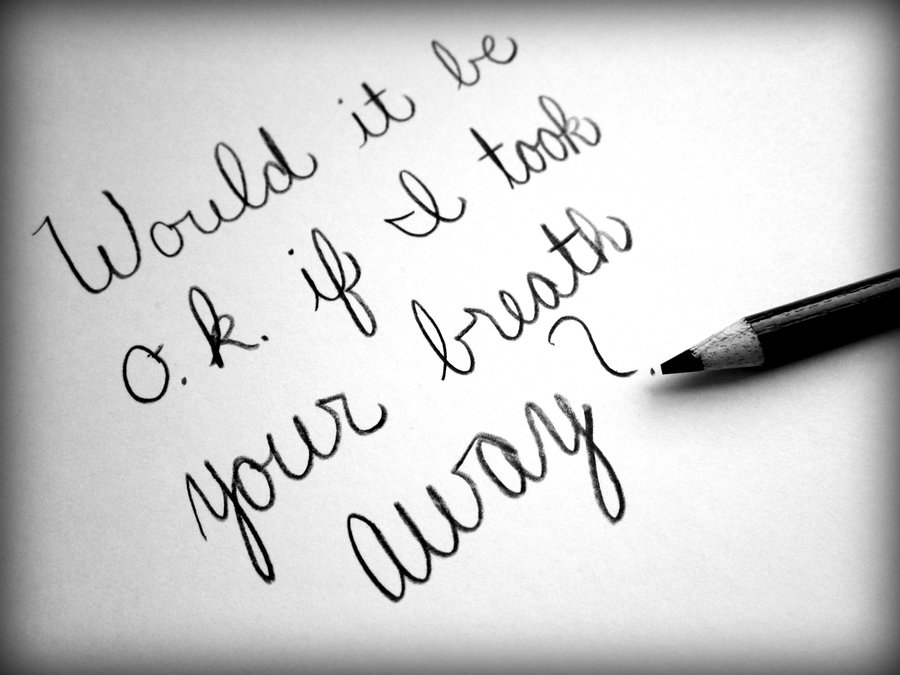 Would it be
o.k. if I took
your breath
away?